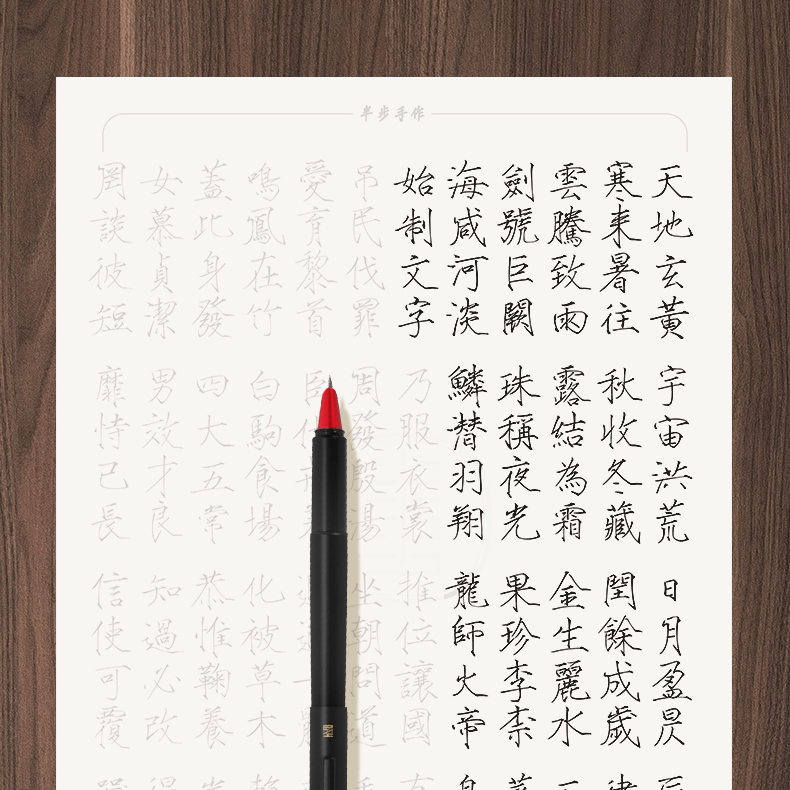 半步手作
天地玄黃 宇宙洪荒 日月盈昃
寒來暑往 秋收冬藏 閏餘成歲
雲騰致雨 露結為霜 金生麗水
劍號巨闕 珠稱夜光 果珍李柰
海咸河淡 鱗潛羽翔 龍師火帝
始制文字 乃服衣裳 推位讓國
吊民伐罪 周發殷湯 坐朝問道
愛育黎首
鳴鳳在竹 白駒食場 化被草木
蓋此身發 四大五常 恭惟鞠養
女慕貞潔 男效才良 知過必改
罔談彼短 靡恃己長 信使可覆